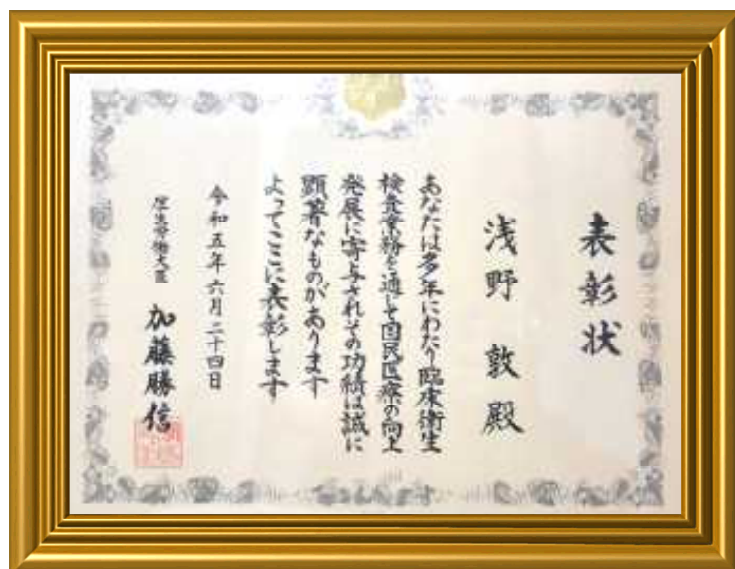 表彰状
浅野 敦 殿
あなたは多年にわたり臨床衛生
検査業務を通じて国民医療の向上
発展に寄与されその功績は誠に
顕著なものがあります
よってここに表彰します
令和五年六月二十四日
厚生労働大臣 加藤勝信